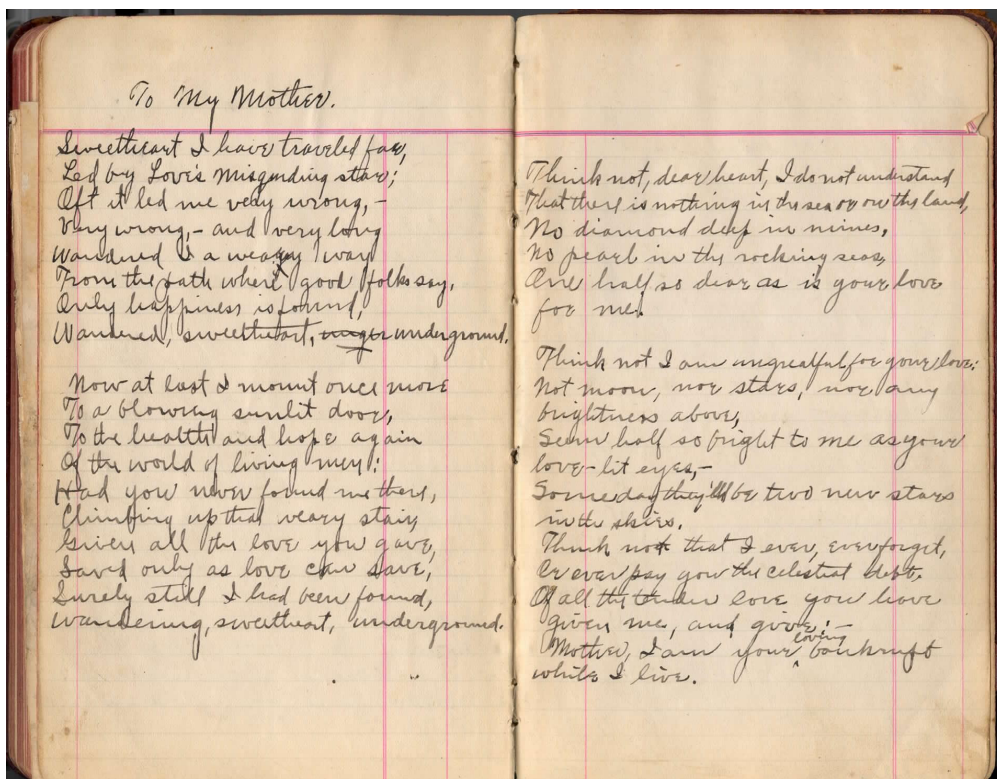 To My Mother.
Sweetheart I have traveled far,
Led by Love's misguiding star;
Oft it led me very wrong,-
Very wrong,- and very long
Wandered I a weary way
From the path where good folks say,
Only happiness is found,
Wandered, sweetheart, under underground.
Now at last I mount once more
To a blowing sunlit door,
To the health and hope again
Of the world of living men:
Had you never found me there,
Climbing up that weary stair,
Given all the love you gave,
Saved only as love can save,
Surely still I had been found,
Wandering, sweetheart, underground.
Think not, dear heart, I do not understand
That there is nothing in the sea or on the land,
No diamond deep in mines,
No pearl in the rocking seas,
One half so dear as is your love
for me!
Think not I am ungrateful for your love:
Not moon, nor stars, nor any
brightness above,
Seem half so bright to me as your
love-lit eyes,-
Someday they'll be two new stars
in the skies.
Think not that I ever, ever forget,
Or ever pay you the celestial debt,
Of all the tender love you have
given me, and give:-
Mother, I am your loving bankrupt
while I live.